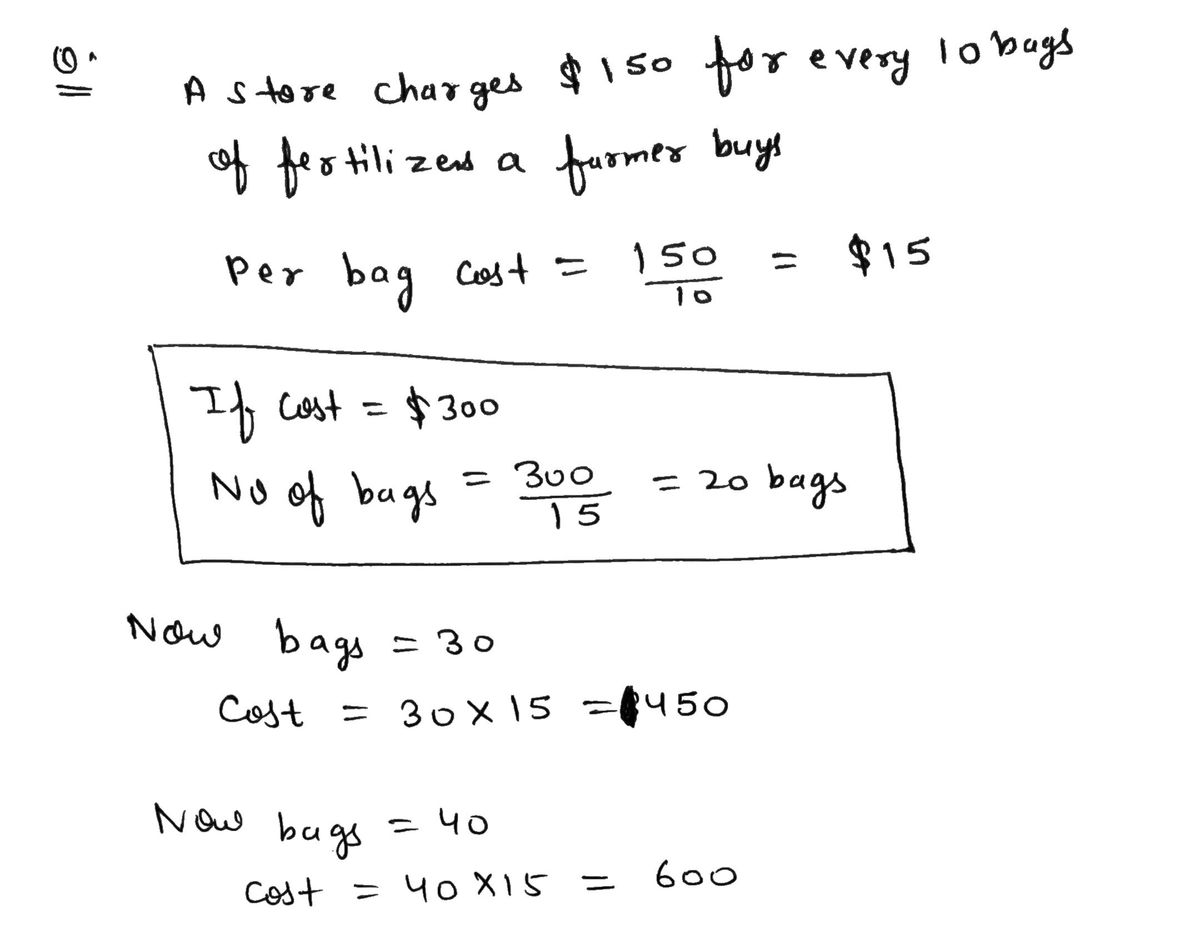 Q.
A store charges $150 for every 10 bags
of fertilizers a farmer buys
Per bag cost = 150/10 = $15
If cost = $300
No of bags = 300/15 = 20 bags
Now bags = 30
Cost = 30 X 15 = 450
Now bags = 40
Cost = 40 X 15 = 600